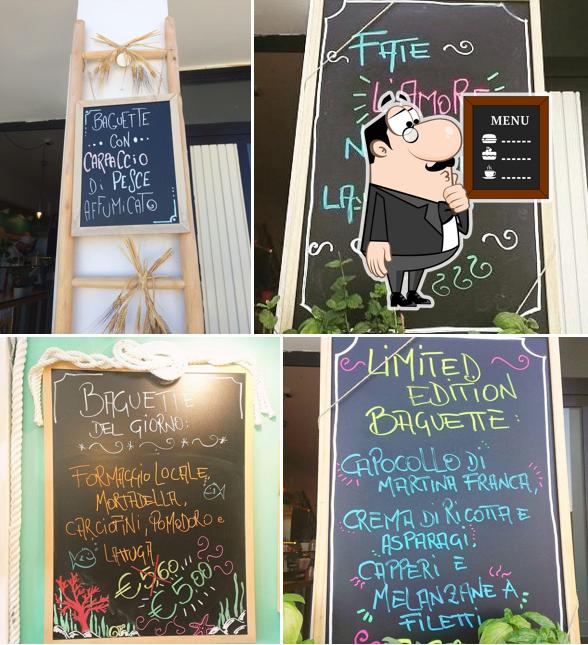 BAGUETTE
CON
CARPACCIO
DI PESCE
AFFUMICATO
FATE
L'AMORE
MENU
BAGUETTE
DEL GIORNO:
FORMAGGIO LOCALE,
MORTADELLA,
CARCIOFINI, POMODORO e
LATTUGA
€5,60
€5,00
LIMITED
EDITION
BAGUETTE:
CAPOCOLLO DI
MARTINA FRANCA,
CREMA DI RICOTTA E
ASPARAGI,
CAPPERI E
MELANZANE A
FILETTI